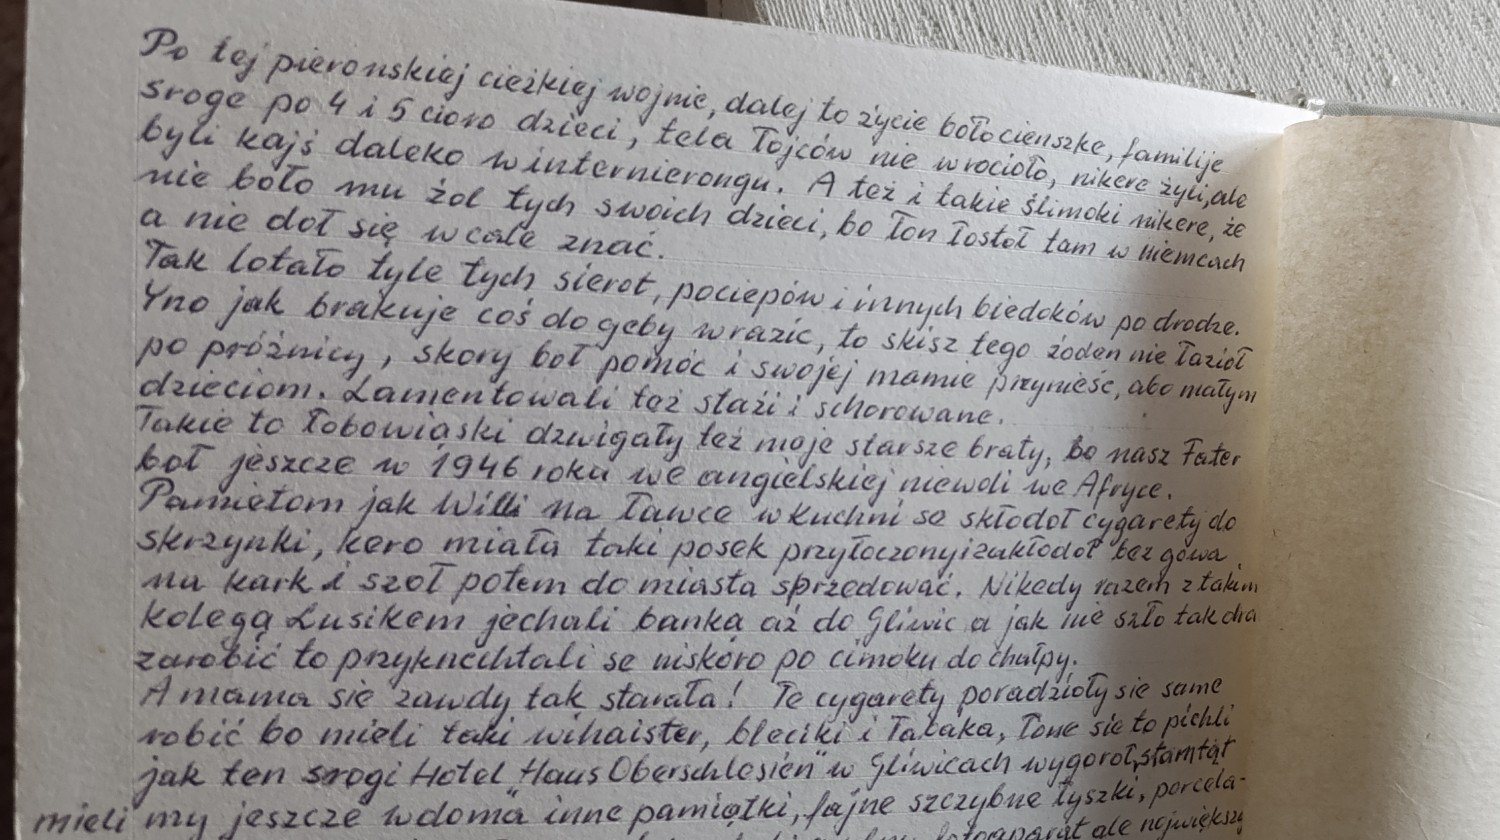 Po tej pierońskiej cieżkiej wojnie, dalej to życie boło cienszke, familije
sroge po 4 i 5 cioro dzieci, tela Łojców nie wrocioło, nikere żyli, ale
byli kajś daleko w internierongu. A też i takie ślimoki nikere, że
nie boło mu żol tych swoich dzieci, bo łon łostoł tam w niemcach
a nie doł się wcale znać.
Tak lotało tyle tych sierot, pociepów i innych biedoków po drodze.
Yno jak brakuje coś do gęby wrazić, to skisz tego żoden nie łazioł
po próżnicy, skory boł pomóc i swojej mamie przynieść, abo małym
dzieciom. Lamentowali też stazi i schorowane.
Takie to łobowiąski dzwigały też moje starsze braty, bo nasz Fater
boł jeszcze w 1946 roku we angielskiej niewoli we Afryce.
Pamietom jak Willi na ławce w kuchni se skłodoł cygarety do
skrzynki, kero miała taki posek przyłoczony i zakłodoł bez gowa
na kark i szoł potem do miasta sprzedować. Nikedy razem z takim
kolegą Lusikem jechali banką aż do Gliwic a jak nie szło tak dra
zarobić to przyknechtali se niskoro po cimoku do chałpy.
A mama sie zawdy tak starała! Te cygarety poradzioły sie same
robić bo mieli taki wihaister, bleciki i Tabaka, Łone sie to pichli
jak ten srogi Hotel „Haus Oberschlesien" w Gliwicach wygoroł, stamtąt
mieli my jeszcze w doma inne pamiątki, fajne szczybne łyszki, porcela-
fotoaparat ale największy